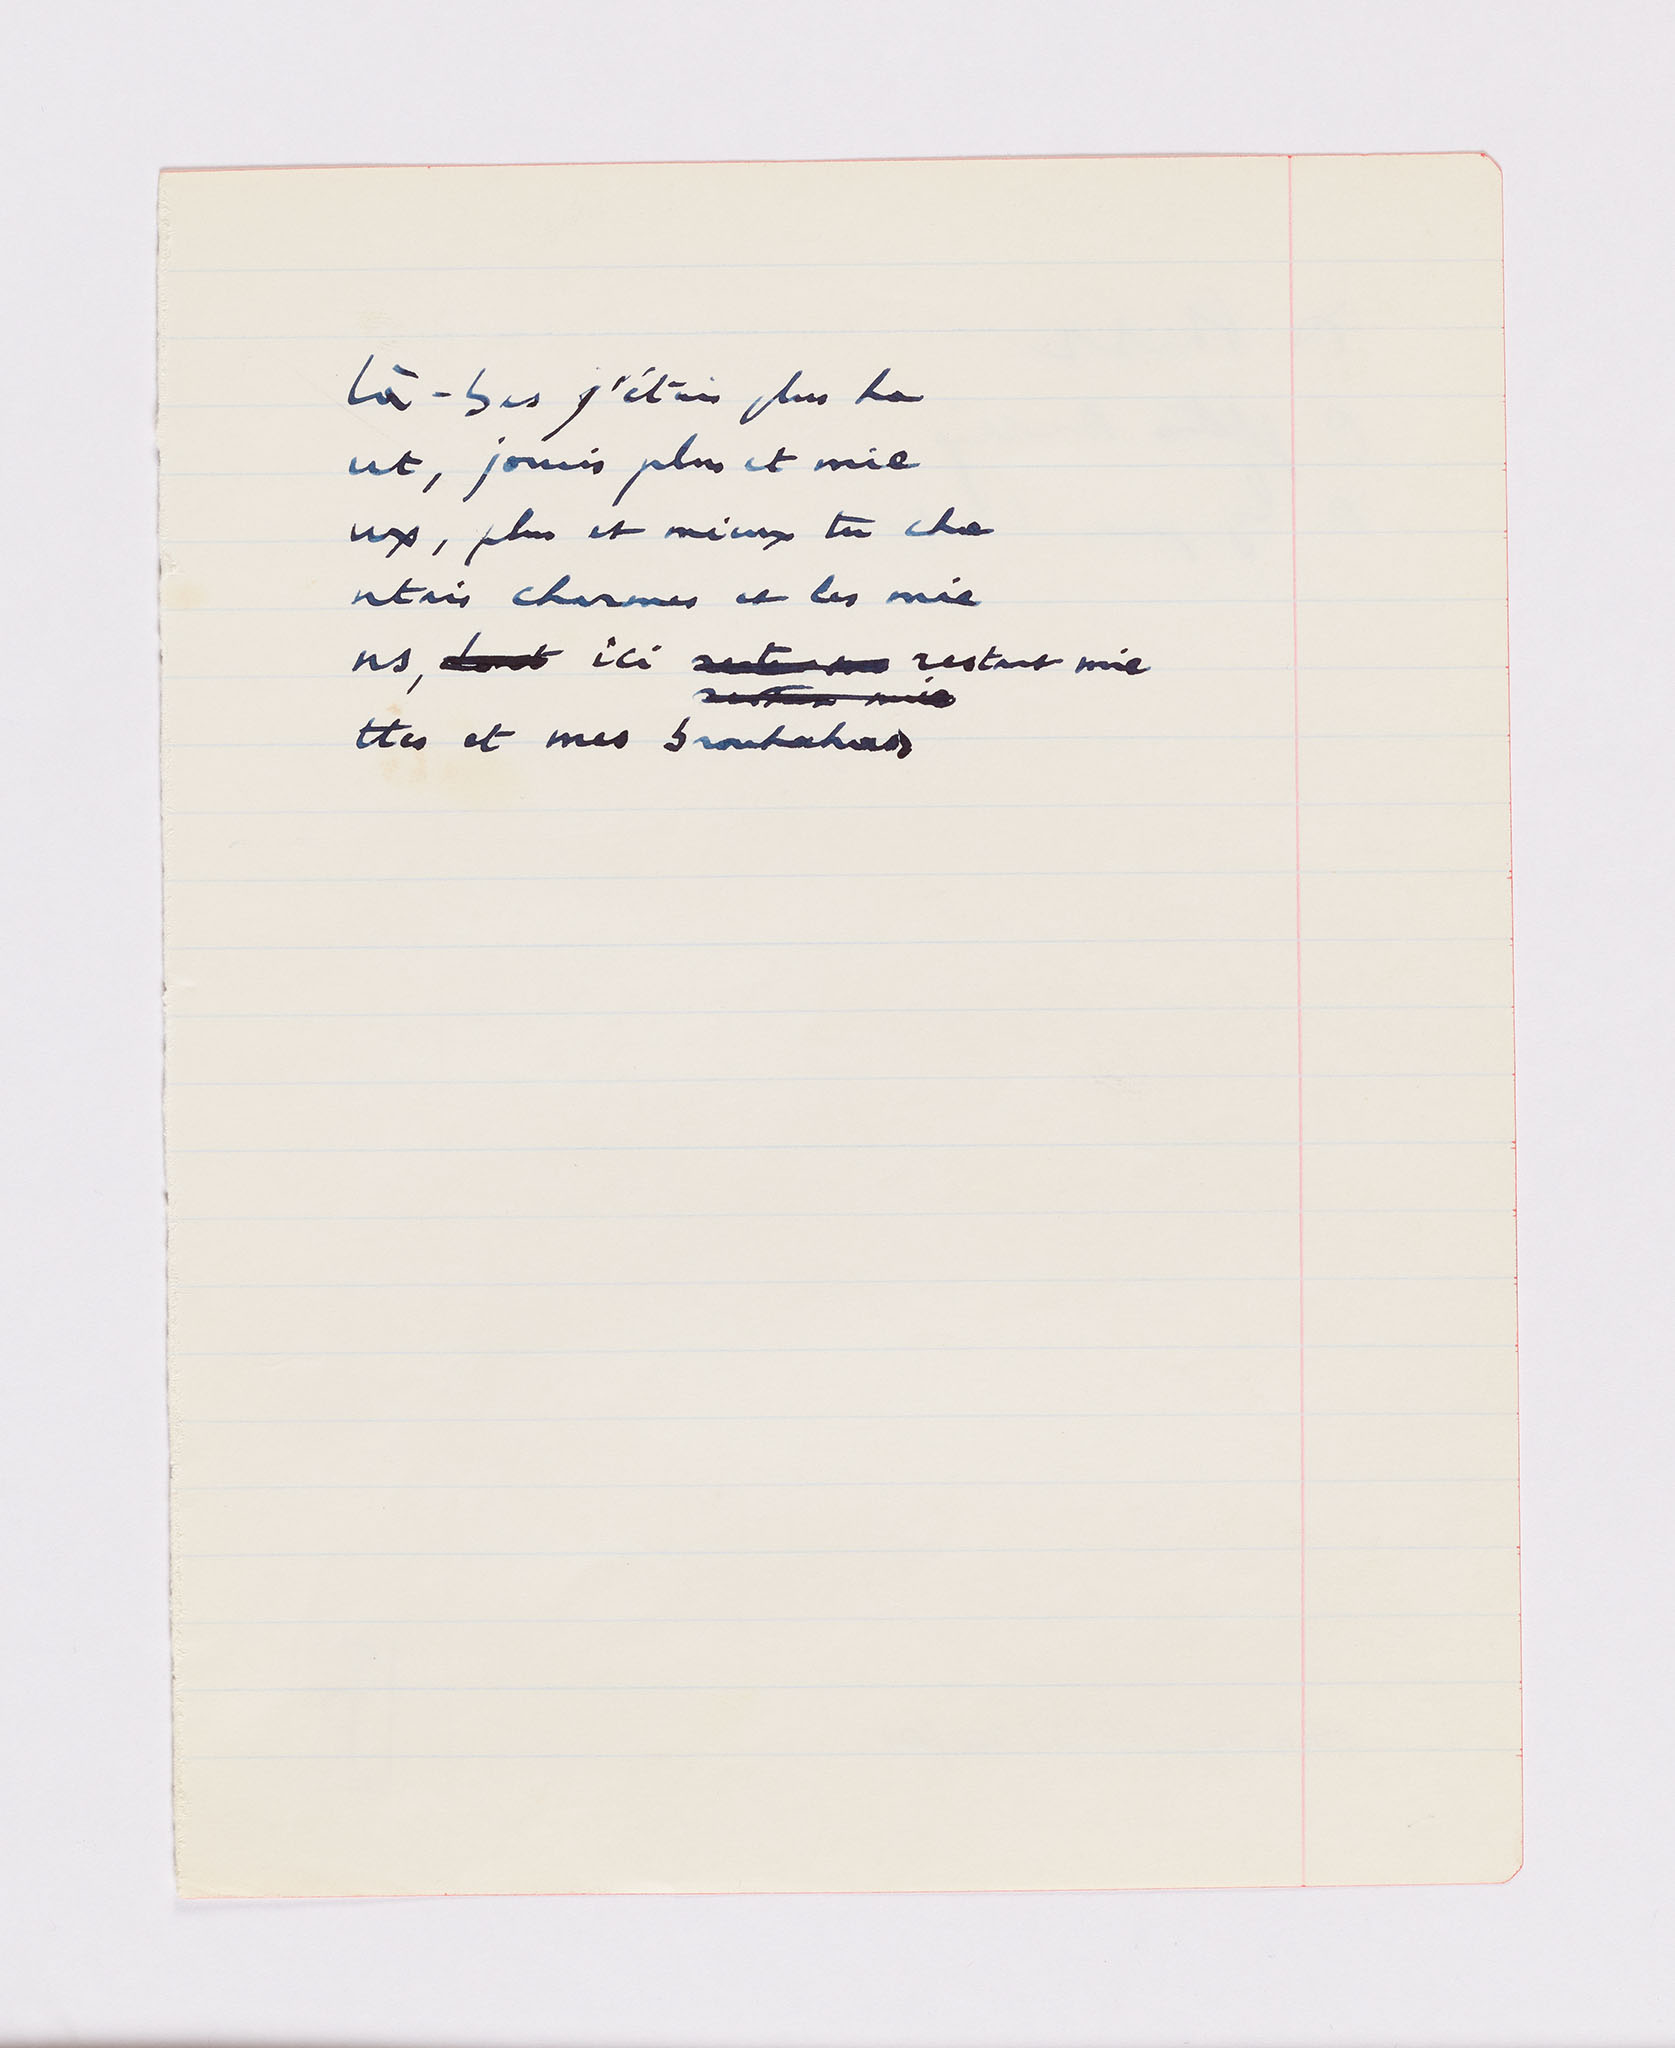 là-bas j'étais plus ha
ut, jouis plus et mie
ux, plus et mieux tu cha
ntais charmes et les mie
ns, dont ici restent mie
ttes et mes brouhahas